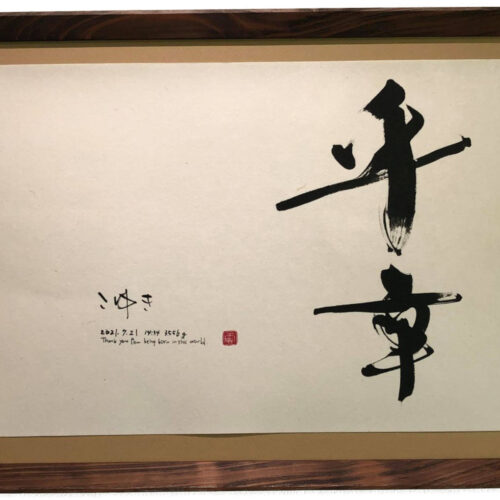 乎幸
こゆき
2021.7.21 14:34 3556g
Thank you for being born in this world